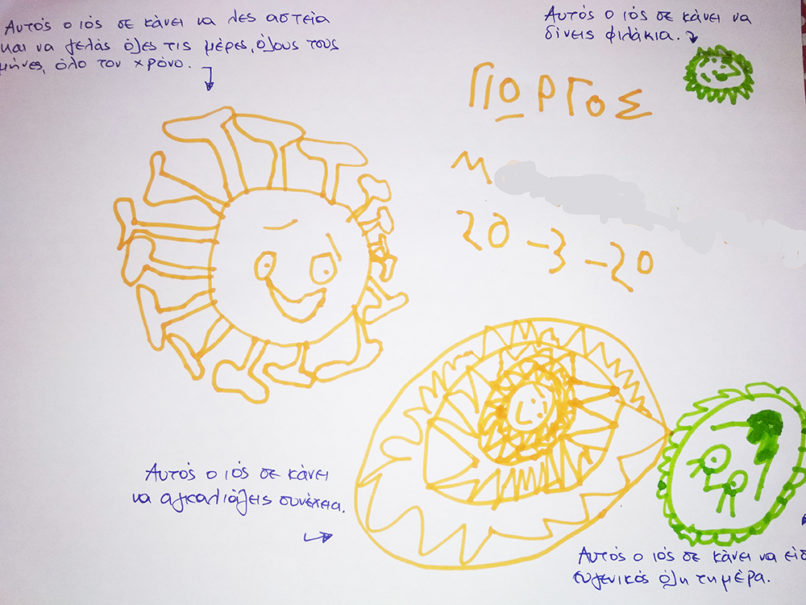 Αυτός ο ιός σε κάνει να λες αστεία
και να γελάς όλες τις μέρες, όλους τους
μήνες, όλο τον χρόνο.
Αυτός ο ιός σε κάνει να
δίνεις φιλάκια.
ΓΙΟΡΓΟΣ
Μ
20-3-20
Αυτός ο ιός σε κάνει
να αγκαλιάζεις συνέχεια.
Αυτός ο ιός σε κάνει να είσ
ευγενικός όλη τη μέρα.